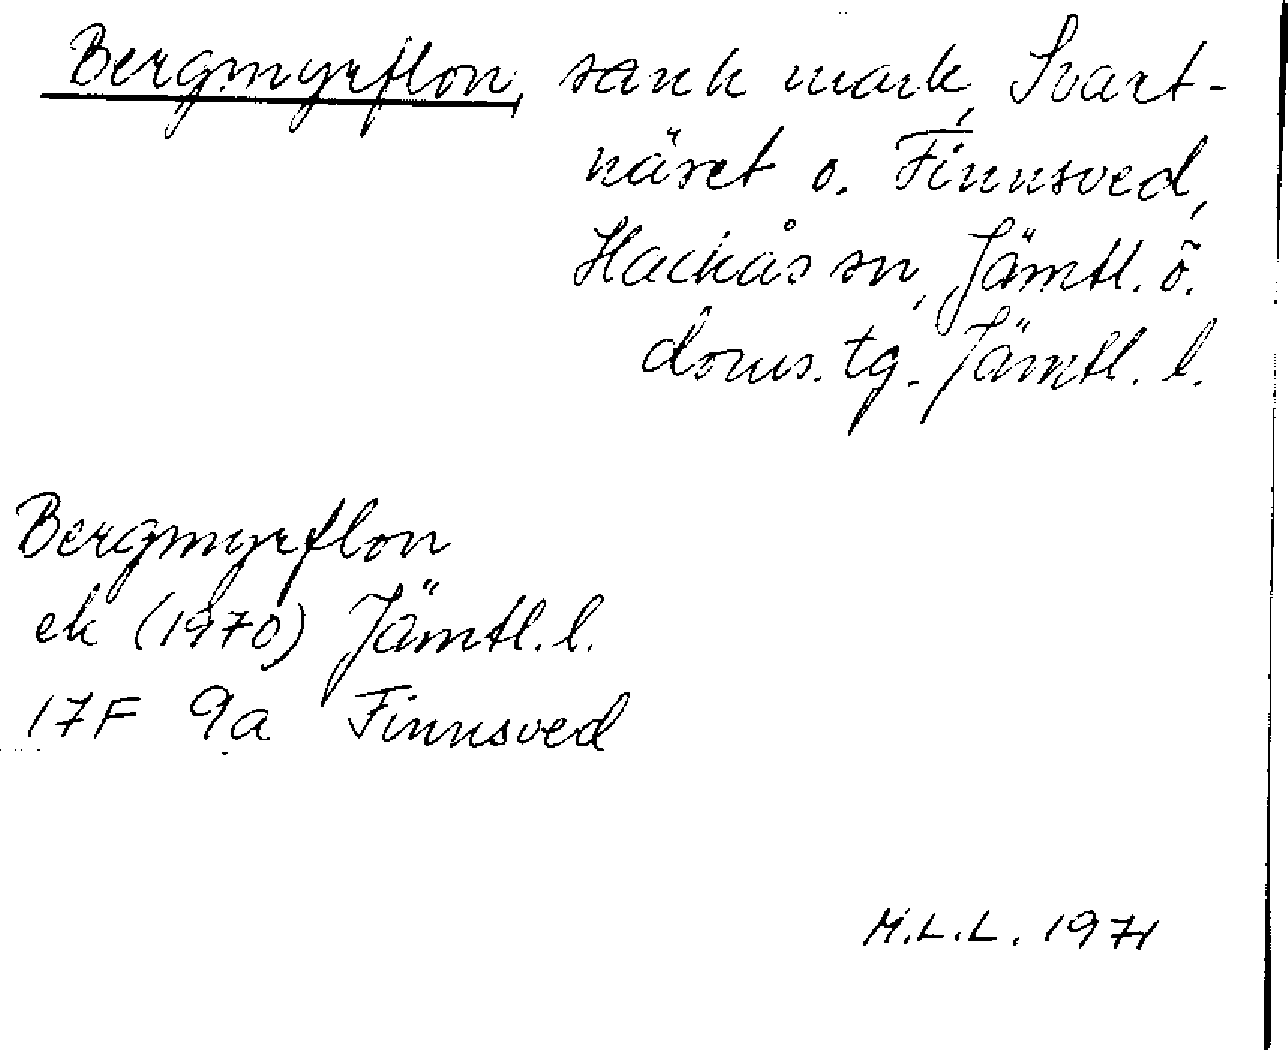 Bergmyrflon, sank mark, Svart-
näset o. Finnsved,
Hackås sn, Jämtl. ö.
doms. tg. Jämtl. l.
Bergmyrflon
ek (1970) Jämtl. l.
17F 9a Finnsved
M.L.L. 1971